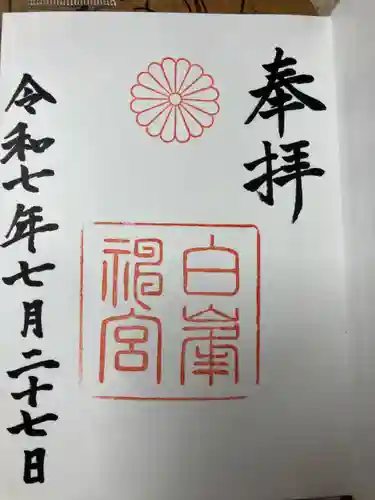 奉拝
白峯神宮
令和七年七月二十七日